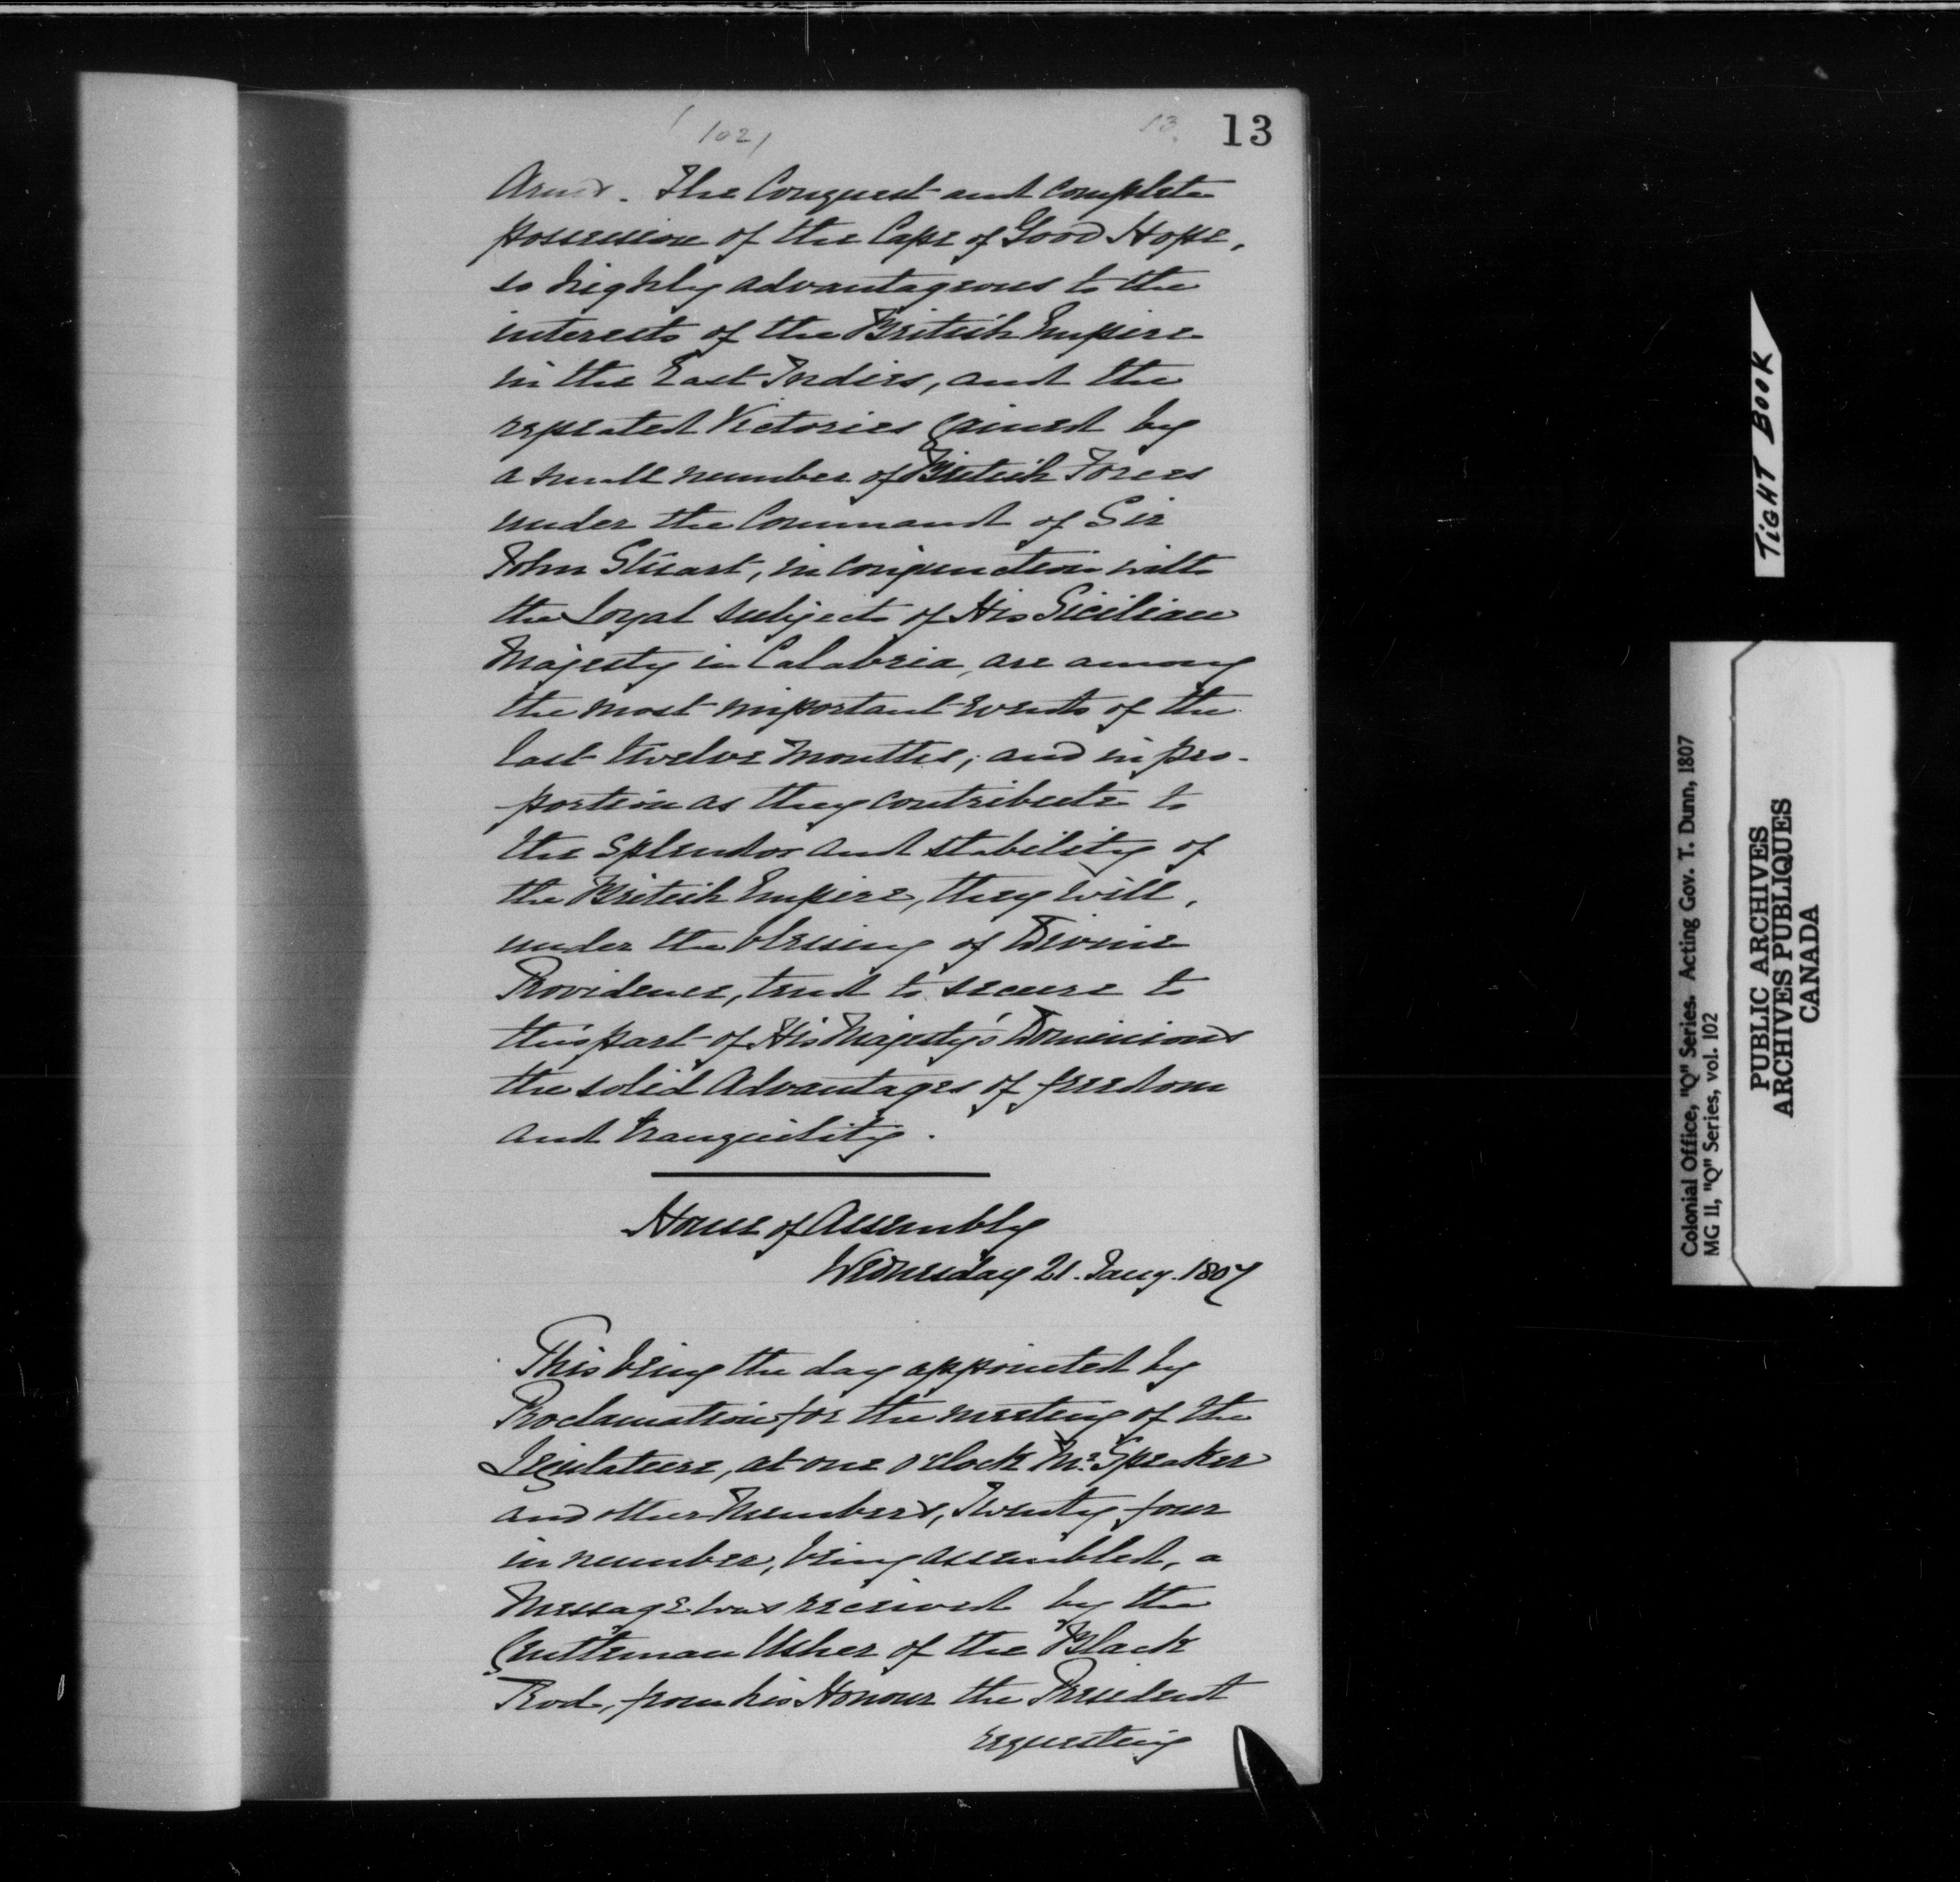 102
13.
13
Arms. The Conquest and complete
possession of the Cape of Good Hope,
so highly advantageous to the
interests of the British Empire
in the East Indies, and the
repeated Victories gained by
a small number of British Forces
under the Command of Sir
John Stuart, in conjunction with
the Loyal subjects of His Sicilian
Majesty in Calabria, are among
the most important events of the
last twelve months; and in pro-
portion as they contribute to
the splendor and stability of
the British Empire, they will,
under the blessing of Divine
Providence, tend to secure to
this part of His Majesty's Dominions
the solid Advantages of freedom
and tranquility.
House of Assembly
Wednesday 21. Jany. 1807
This being the day appointed by
Proclamation for the meeting of the
Legislature, at one o'clock Mr. Speaker
and other Members, Twenty four
in number, being assembled, a
Message was received by the
Gentleman Usher of the Black
Rod, from his Honour the President
requesting
TIGHT BOOK
Colonial Office, "Q" Series. Acting Gov. T. Dunn, 1807
MG 11, "Q" Series, vol. 102
PUBLIC ARCHIVES
ARCHIVES PUBLIQUES
CANADA